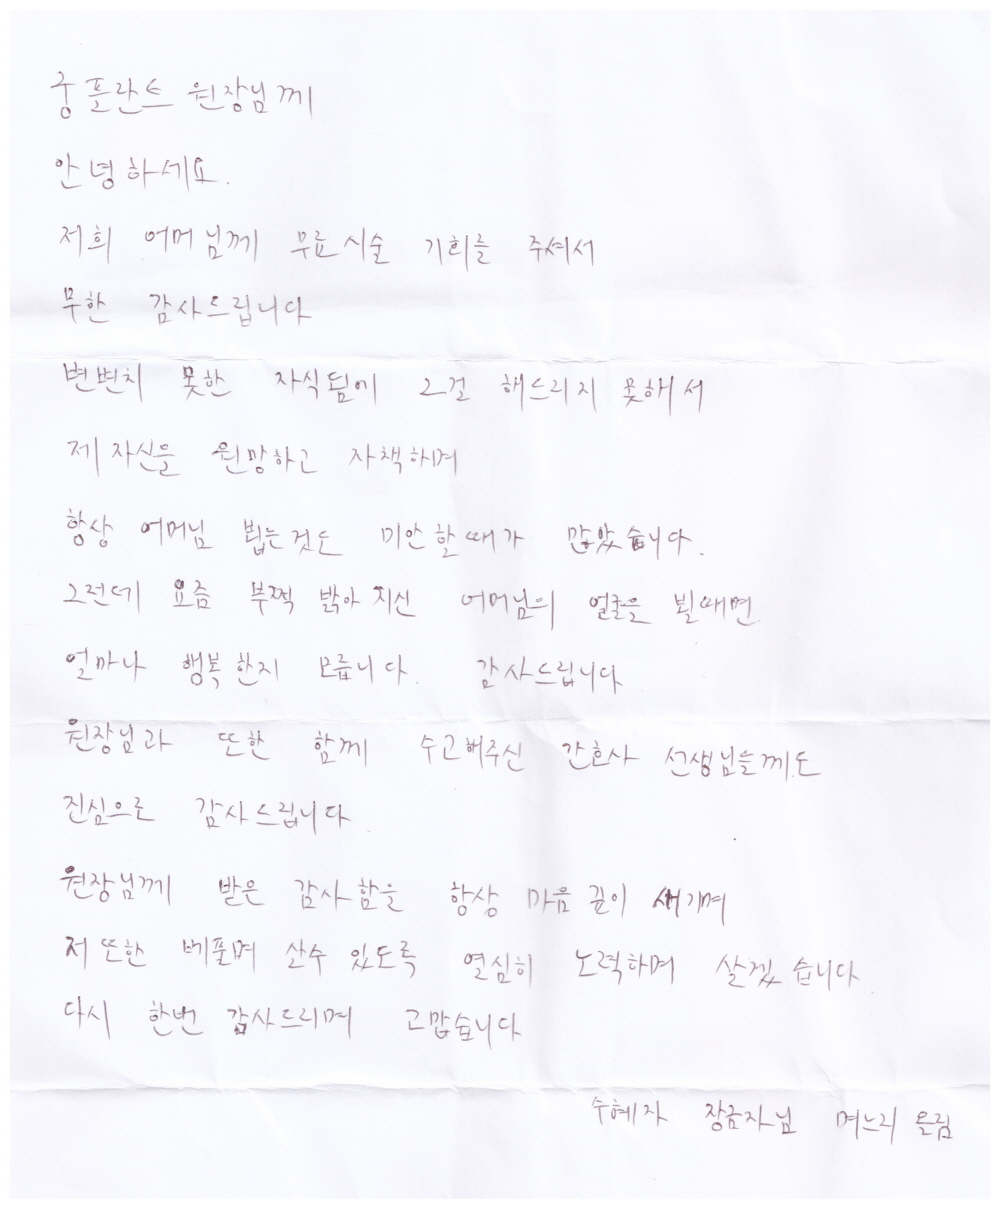 궁플란트 원장님께
안녕하세요.
저희 어머님께 무료시술 기회를 주셔서
무한 감사드립니다
변변치 못한 자식됨에 그걸 해드리지 못해서
제 자신을 원망하고 자책하며
항상 어머님 뵙는것도 미안할때가 많았습니다.
그런데 요즘 부쩍 밝아지신 어머님의 얼굴을 뵐때면
얼마나 행복한지 모릅니다. 감사드립니다
원장님과 또한 함께 수고해주신 간호사 선생님들께도
진심으로 감사드립니다.
원장님께 받은 감사함을 항상 마음 깊이 새기며
저 또한 베풀며 산수 있도록 열심히 노력하며 살겠습니다
다시 한번 감사드리며 고맙습니다
수혜자 장금자님 며느리 올림